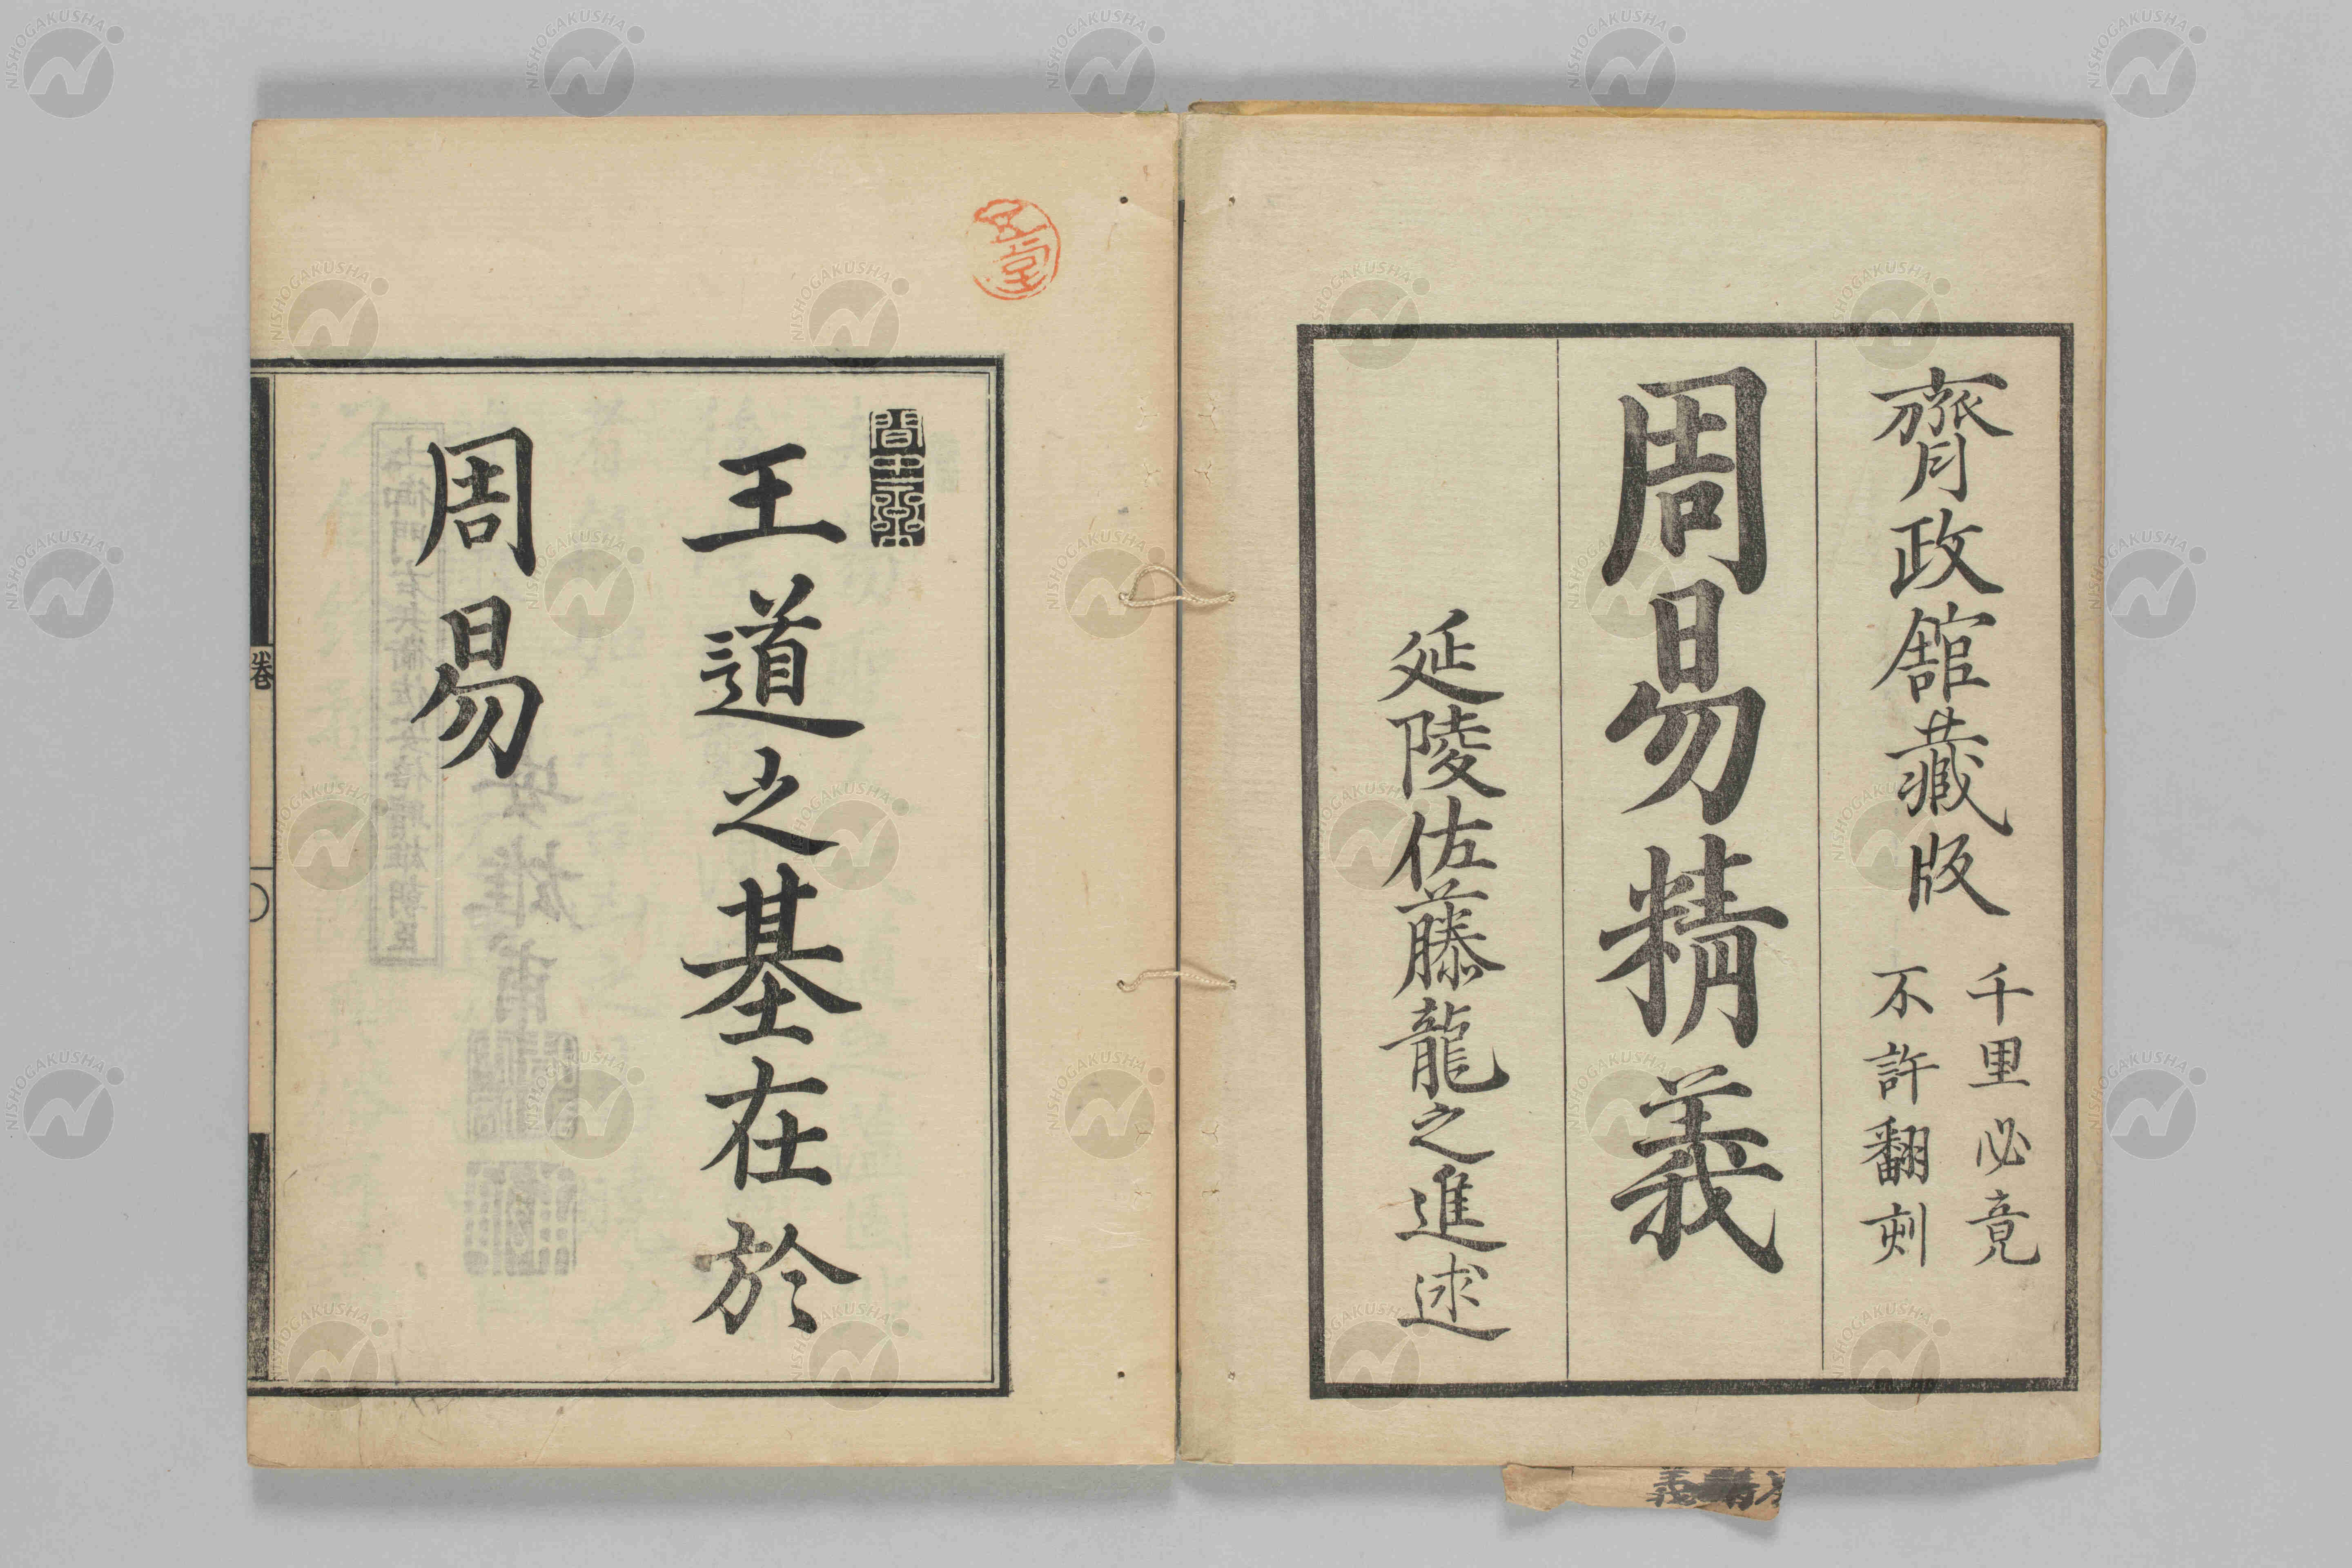 齊政館藏版
千里必竟
不許翻刻
周易精義
延陵佐藤龍之進述
王道之基在於
周易
卷
精義
NISHOGAKUSHA